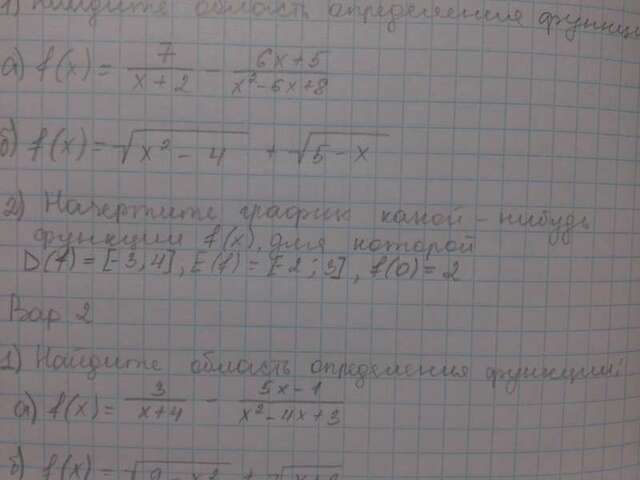 1) Найдите область определения функции
а) f(x) = 7/(x+2) - (6x+5)/(x²-6x+8)
б) f(x) = √(x² - 4) + √(5-x)
2) Начертите график какой-нибудь
функции f(x), для которой
D(f) = [-3; 4], E(f) = [-2; 3], f(0) = 2
Вар 2
1) Найдите область определения функции:
а) f(x) = 3/(x+4) - (5x-1)/(x²-4x+3)
б) f(x) = √(9-x²) +